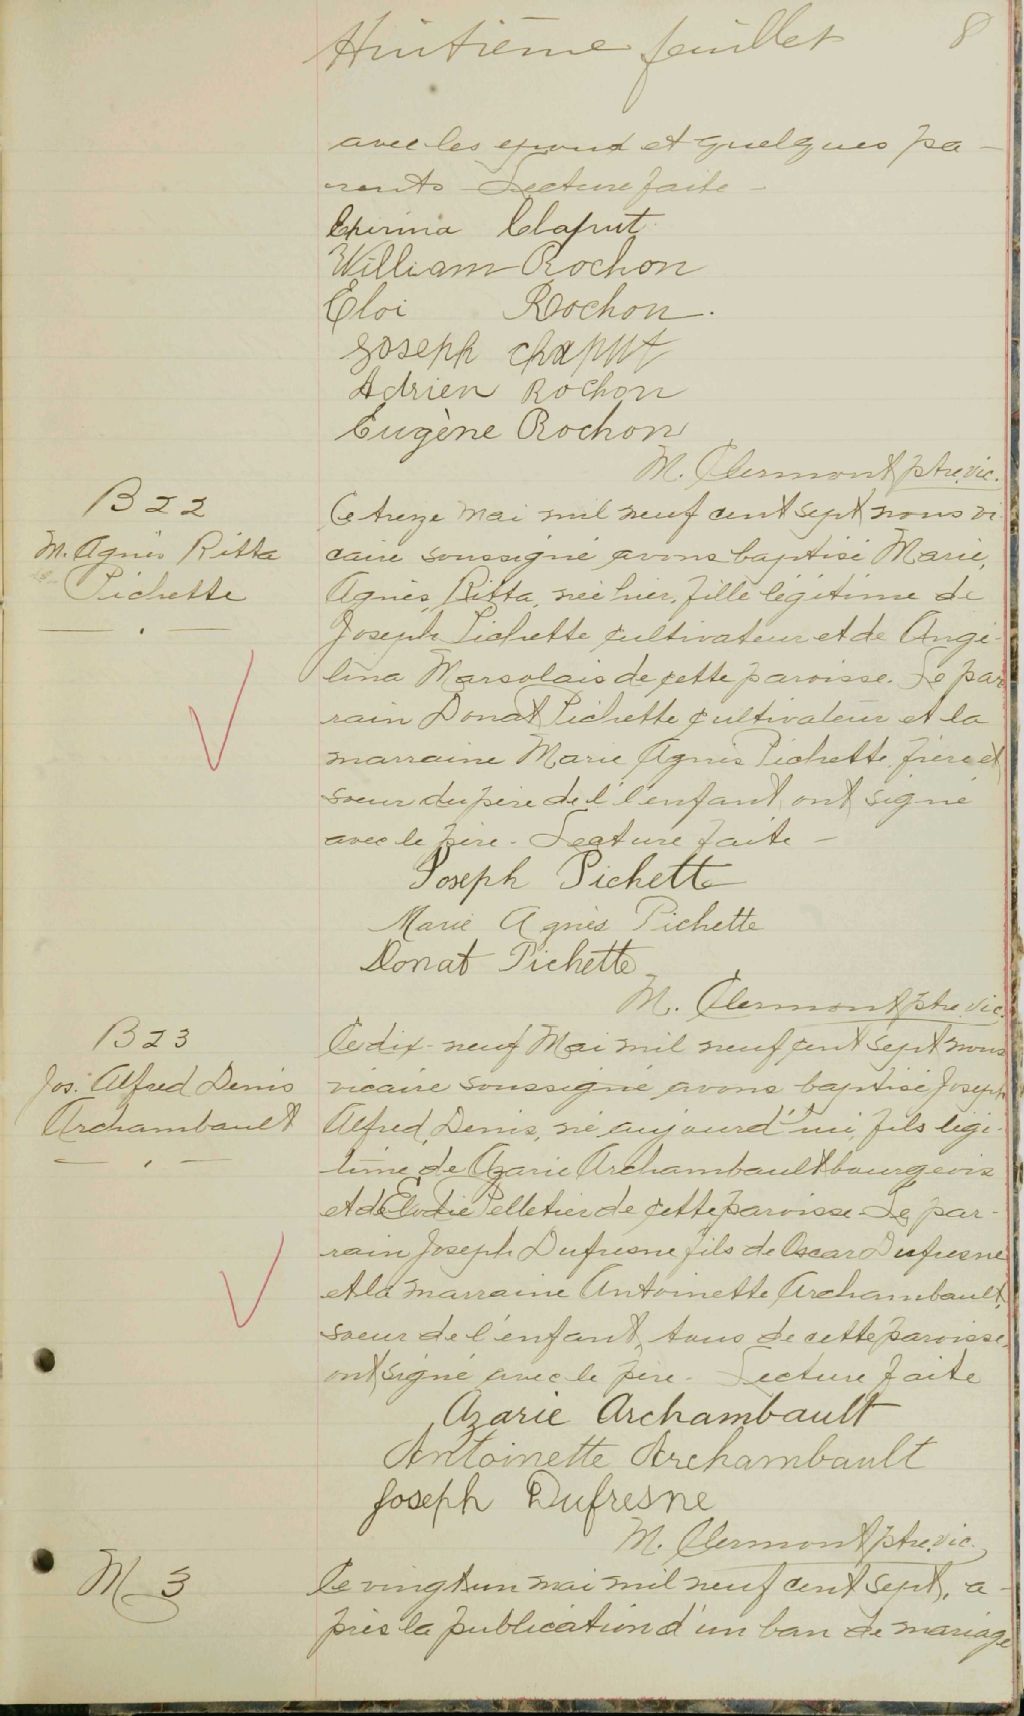 Huitième feuillet 8
avec les epoux et quelques pa-
rents - Lecture faite -
Chaput
William Rochon
Eloi Rochon.
Joseph Chaput
Adrien Rochon
Eugène Rochon
M. Clermont ptre. vic.
B 22
M. Agnès Ritta
Pichette
Ce treize mai mil neuf cent sept nous vi
caire soussigné avons baptisé Marie,
Agnès, Ritta, née hier, fille légitime de
Joseph Pichette cultivateur et de Angé-
lina Marsolais de cette paroisse. Le par
rain Donat Pichette cultivateur et la
marraine Marie Agnès Pichette, frère et
soeur du père de l'enfant, ont signé
avec le père - Lecture faite -
Joseph Pichette
Marie Agnès Pichette
Donat Pichette
M. Clermont ptre. vic.
B 23
Jos. Alfred Denis
Archambault
Le dix-neuf Mai mil neuf cent sept nous
vicaire soussigné avons baptisé Joseph
Alfred, Denis, né aujourd'hui, fils légi-
time de Azarie Archambault bourgeois
et de Elodie Pelletier de cette paroisse - Le par-
rain Joseph Dufresne fils de Oscar Dufresne
et la marraine Antoinette Archambault,
soeur de l'enfant, tous de cette paroisse,
ont signé avec le père - Lecture faite
Azarie Archambault
Antoinette Archambault
Joseph Dufresne
M. Clermont ptre. vic.
M 3
Le vingt un mai mil neuf cent sept, a-
près la publication d'un ban de mariage